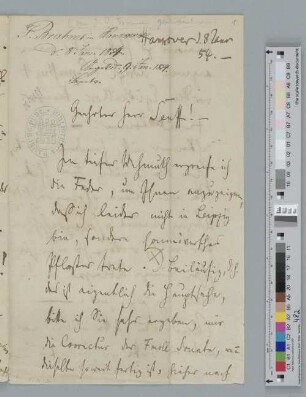 J. Brahms in Hannover
d. 8 Jan. 1854
Hanover d. 8 Jan
54.
Geehrter Herr Senff! –
In tiefer Wehmuth ergreife ich
die Feder, um Ihnen anzuzeigen,
daß ich leider nicht in Leipzig
bin, sondern hannöversches
Pflaster trete. Beiläufig, doch
das ist eigentlich die Hauptsache,
bitte ich Sie sehr ergeben, mir
die Correctur der Fmoll Sonate, wenn
dieselbe so weit fertig ist, hieher nach